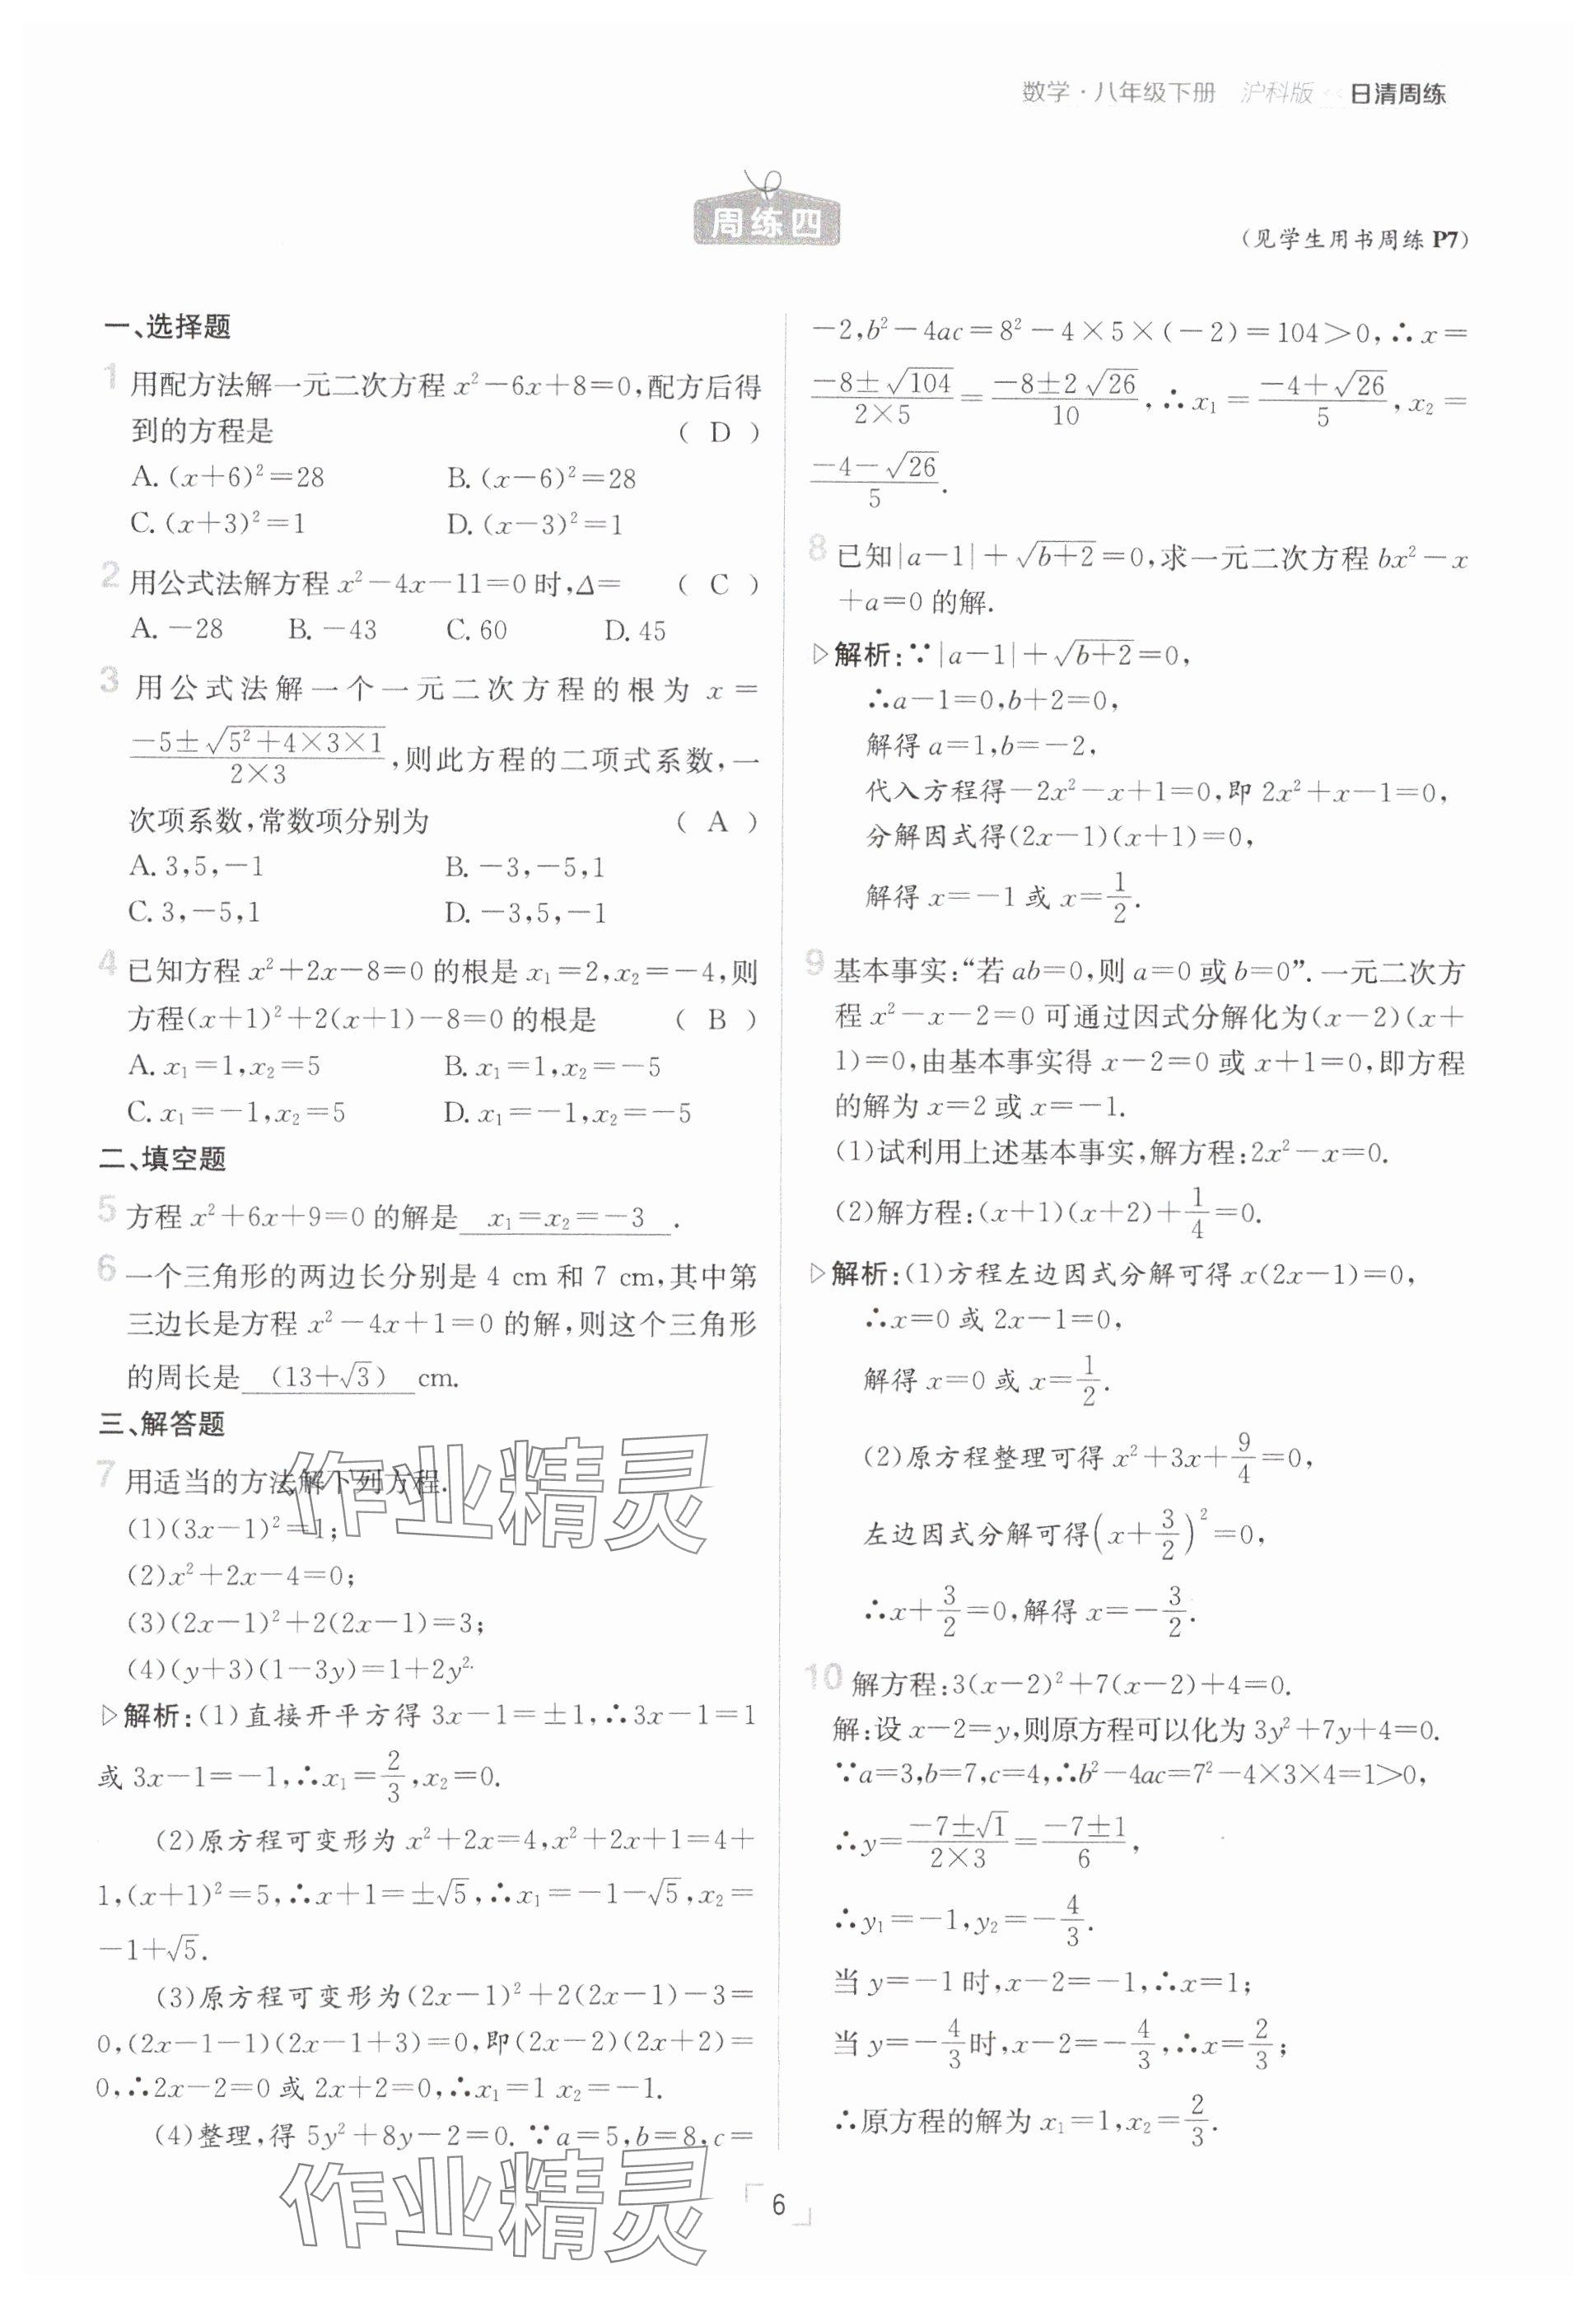 数学·八年级下册 沪科版 日清周练
周练四
(见学生用书周练P7)
一、选择题
1 用配方法解一元二次方程 x²-6x+8=0,配方后得
到的方程是 ( D )
A. (x+6)²=28 B. (x-6)²=28
C. (x+3)²=1 D. (x-3)²=1
2 用公式法解方程 x²-4x-11=0时,Δ= ( C )
A. -28 B. -43 C. 60 D. 45
3 用公式法解一个一元二次方程的根为 x=
\frac{-5±√(5²+4×3×1)}{2×3},则此方程的二项式系数,一
次项系数,常数项分别为 ( A )
A. 3,5,-1 B. -3,-5,1
C. 3,-5,1 D. -3,5,-1
4 已知方程 x²+2x-8=0的根是 x₁=2,x₂=-4,则
方程(x+1)²+2(x+1)-8=0的根是 ( B )
A. x₁=1,x₂=5 B. x₁=1,x₂=-5
C. x₁=-1,x₂=5 D. x₁=-1,x₂=-5
二、填空题
5 方程 x²+6x+9=0的解是 x₁=x₂=-3 .
6 一个三角形的两边长分别是 4 cm 和 7 cm,其中第
三边长是方程 x²-4x+1=0 的解,则这个三角形
的周长是 (13+√3) cm.
三、解答题
7 用适当的方法解下列方程.
(1)(3x-1)²=1;
(2)x²+2x-4=0;
(3)(2x-1)²+2(2x-1)=3;
(4)(y+3)(1-3y)=1+2y².
▷解析:(1)直接开平方得 3x-1=±1,∴3x-1=1
或 3x-1=-1,∴x₁=\frac{2}{3},x₂=0.
(2)原方程可变形为 x²+2x=4,x²+2x+1=4+
1,(x+1)²=5,∴x+1=±√5,∴x₁=-1-√5,x₂=
-1+√5.
(3)原方程可变形为(2x-1)²+2(2x-1)-3=
0,(2x-1-1)(2x-1+3)=0,即(2x-2)(2x+2)=
0,∴2x-2=0 或 2x+2=0,∴x₁=1 x₂=-1.
(4)整理,得 5y²+8y-2=0. ∵a=5,b=8,c=
-2,b²-4ac=8²-4×5×(-2)=104>0,∴x=
\frac{-8±√104}{2×5}=\frac{-8±2√26}{10},∴x₁=\frac{-4+√26}{5},x₂=
\frac{-4-√26}{5}.
8 已知|a-1|+√(b+2)=0,求一元二次方程 bx²-x
+a=0 的解.
▷解析:∵|a-1|+√(b+2)=0,
∴a-1=0,b+2=0,
解得 a=1,b=-2,
代入方程得-2x²-x+1=0,即 2x²+x-1=0,
分解因式得(2x-1)(x+1)=0,
解得 x=-1 或 x=\frac{1}{2}.
9 基本事实:“若 ab=0,则 a=0 或 b=0”.一元二次方
程 x²-x-2=0 可通过因式分解化为(x-2)(x+
1)=0,由基本事实得 x-2=0 或 x+1=0,即方程
的解为 x=2 或 x=-1.
(1)试利用上述基本事实,解方程:2x²-x=0.
(2)解方程:(x+1)(x+2)+\frac{1}{4}=0.
▷解析:(1)方程左边因式分解可得 x(2x-1)=0,
∴x=0 或 2x-1=0,
解得 x=0 或 x=\frac{1}{2}.
(2)原方程整理可得 x²+3x+\frac{9}{4}=0,
左边因式分解可得(x+\frac{3}{2})²=0,
∴x+\frac{3}{2}=0,解得 x=-\frac{3}{2}.
10 解方程:3(x-2)²+7(x-2)+4=0.
解:设 x-2=y,则原方程可以化为 3y²+7y+4=0.
∵a=3,b=7,c=4,∴b²-4ac=7²-4×3×4=1>0,
∴y=\frac{-7±√1}{2×3}=\frac{-7±1}{6},
∴y₁=-1,y₂=-\frac{4}{3}.
当 y=-1 时,x-2=-1,∴x=1;
当 y=-\frac{4}{3}时,x-2=-\frac{4}{3},∴x=\frac{2}{3};
∴原方程的解为 x₁=1,x₂=\frac{2}{3}.
作业精灵
作业精灵
6